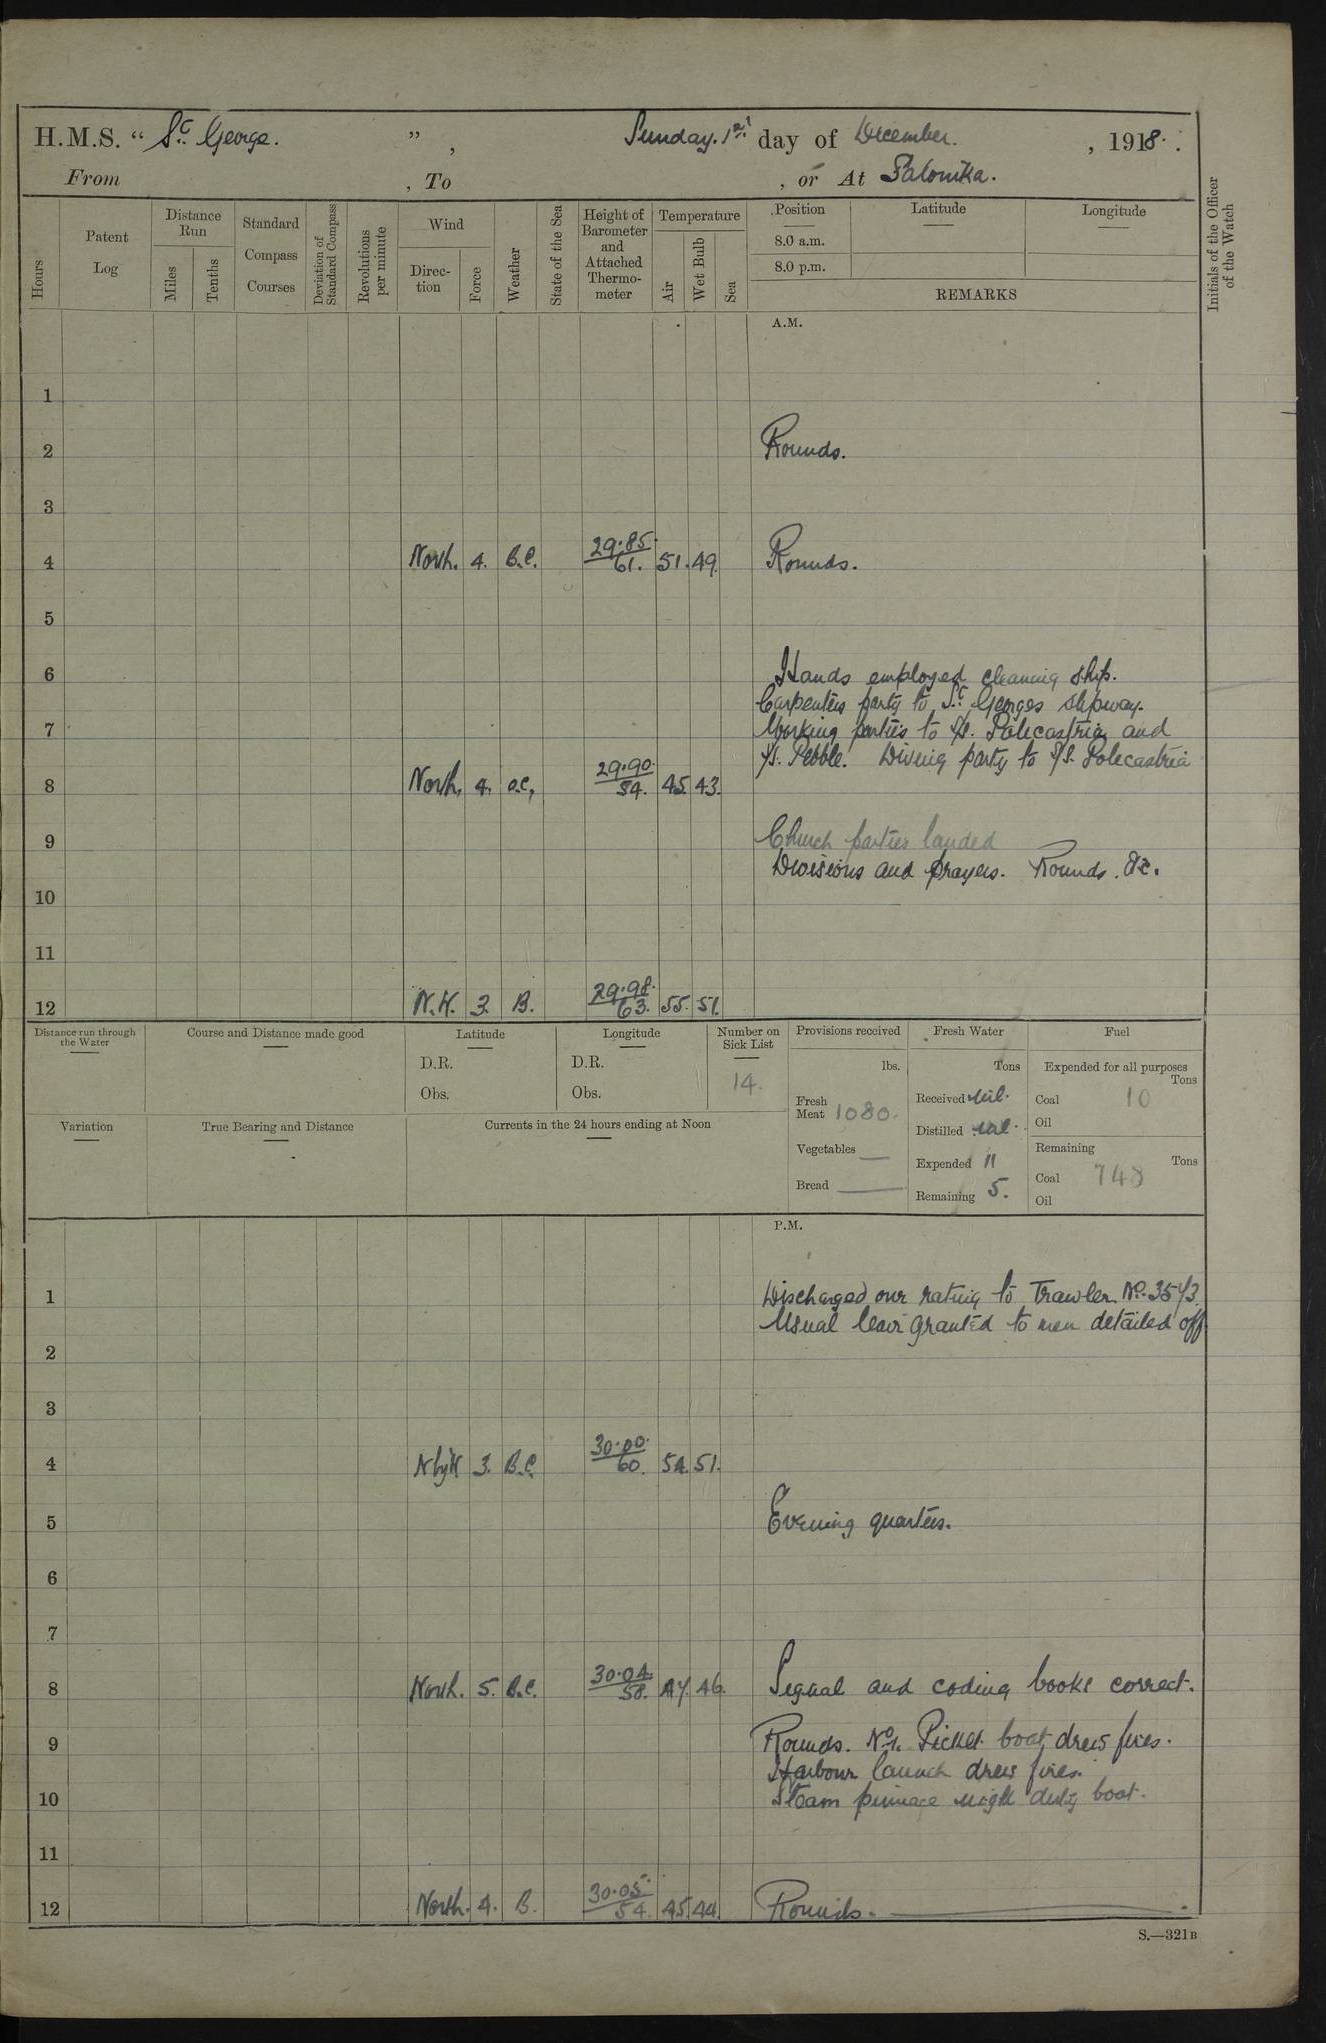 H.M.S. “ St George. ” , Sunday. 1st day of December. , 1918.
From , To , or At Salonika.
Hours
Patent Log
Distance Run
Miles
Tenths
Standard Compass Courses
Deviation of Standard Compass
Revolutions per minute
Wind
Direc-tion
Force
Weather
State of the Sea
Height of Barometer and Attached Thermo-meter
Temperature
Air
Wet Bulb
Sea
Position
8.0 a.m.
8.0 p.m.
Latitude
Longitude
REMARKS
Initials of the Officer of the Watch
A.M.
1
2 Rounds.
3
4 North. 4. B.C. 29.85 61. 51. 49. Rounds.
5
6 Hands employed cleaning ship.
Carpenters party to St. Georges slipway.
7 Working parties to S/S. Polecastria and
S/S. Pebble. Diving party to S/S. Polecastria
8 North, 4. o.c, 29.90. 54. 45. 43.
9 Church parties landed
Divisions and Prayers. Rounds. &c.
10
11
12 N.W. 3. B. 29.98. 63. 55. 51.
Distance run through the Water
Course and Distance made good
Latitude
D.R.
Obs.
Longitude
D.R.
Obs.
Number on Sick List
14.
Provisions received
lbs.
Fresh Meat 1080.
Vegetables —
Bread —
Fresh Water
Tons
Received nil.
Distilled nil.
Expended 11
Remaining 5.
Fuel
Expended for all purposes
Tons
Coal 10
Oil
Remaining
Tons
Coal 748
Oil
Variation
True Bearing and Distance
Currents in the 24 hours ending at Noon
P.M.
1 Discharged one rating to Trawler No. 3573.
Usual leave granted to men detailed off
2
3
4 N by W 3. B.C. 30.00. 60. 54. 51.
5 Evening quarters.
6
7
8 North. 5. B.C. 30.04. 58. 47. 46. Signal and coding books correct.
9 Rounds. No 1. Picket boat drew fires.
Harbour launch drew fires.
10 Steam pinnace night duty boat.
11
12 North. 4. B. 30.05. 54. 45. 44. Rounds.
S.—321B